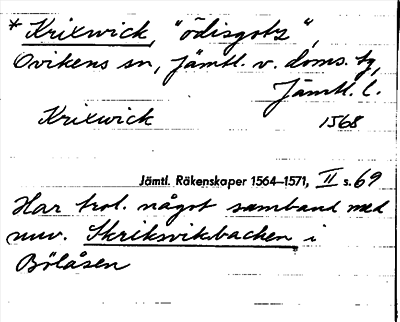 * Krixwick, "ödisgotz",
Ovikens sn, Jämtl. v. doms. tg,
Jämtl. l.
Krixwick 1568
Jämtl. Räkenskaper 1564–1571, II s. 69
Har trol. något samband med
nuv. Skriksvikbacken i
Bölåsen